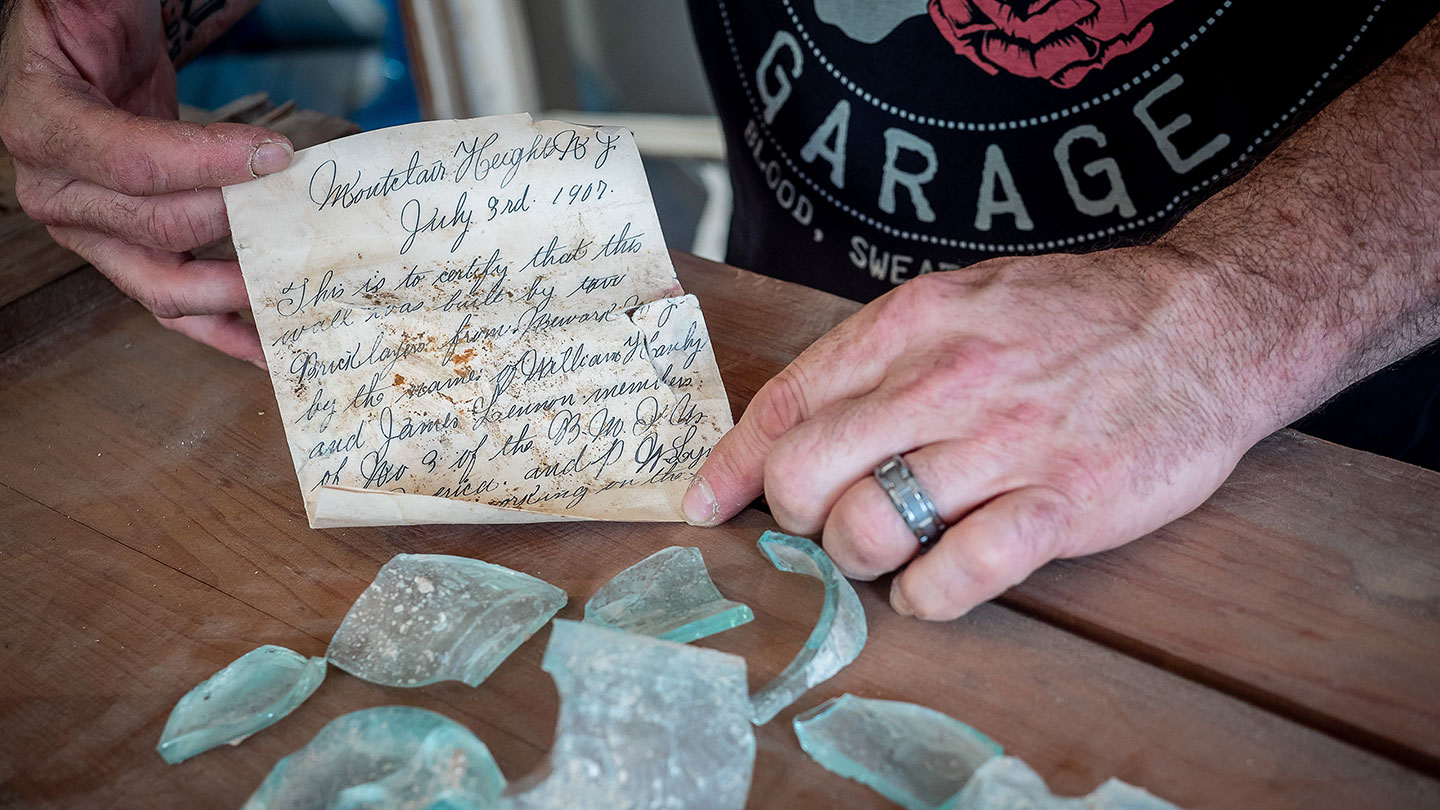 Montclair Heights N J
July 3rd. 1907.
This is to certify that this
wall was built by two
Bricklayers from Newark N. J.
by the names of William Hanly
and James Lennon members
of No 3 of the B M I U
erica. and P
orking on the
GARAGE
BLOOD, SWEA